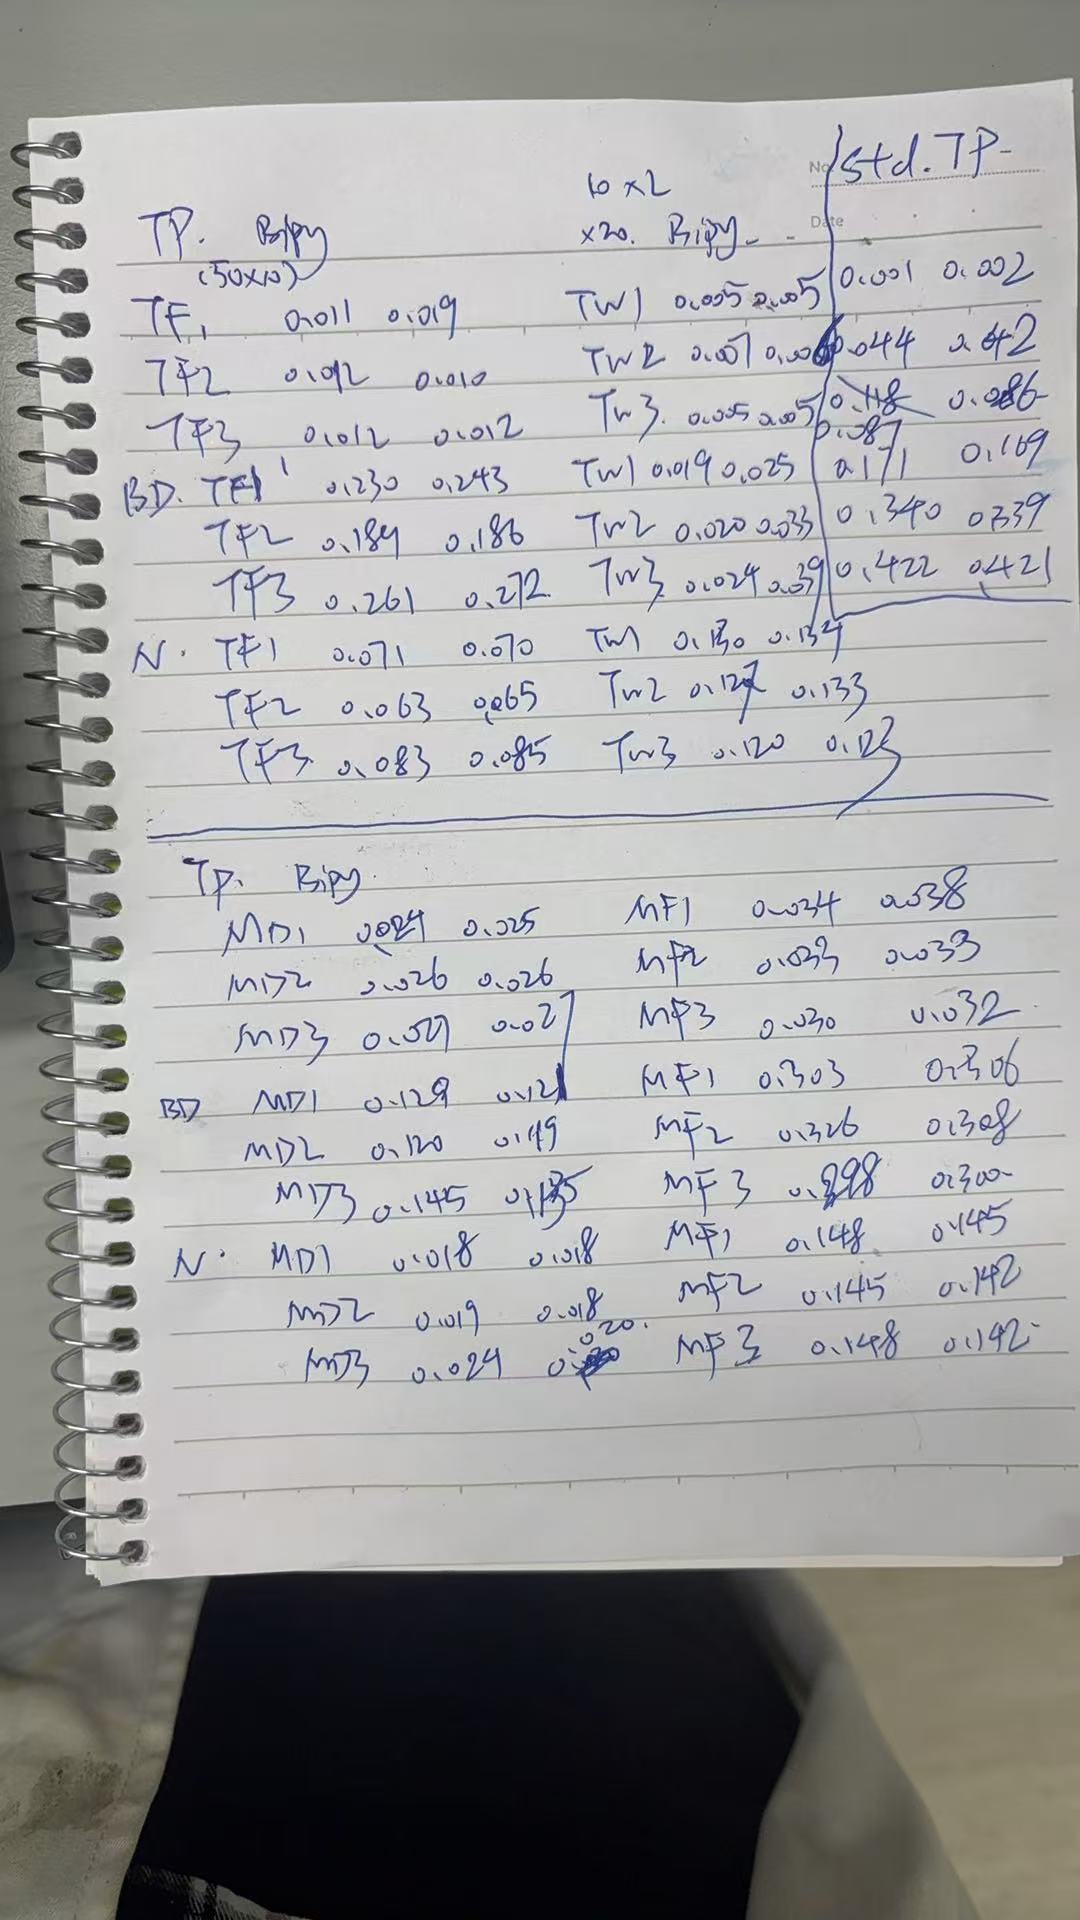 No. std. TP-
10 x 2
TP. Bipy x20. Bipy - Date
(50x10)
TF1 0.011 0.019 TW1 0.005 0.005 0.001 0.002
TF2 0.012 0.010 TW2 0.007 0.006 0.044 0.042
TF3 0.012 0.012 TW3. 0.005 0.005 0.118 0.086
0.087
BD. TF1 0.230 0.243 TW1 0.019 0.025 0.171 0.169
TF2 0.189 0.186 TW2 0.020 0.033 0.340 0.339
TF3 0.261 0.272 TW3 0.024 0.039 0.422 0.421
N. TF1 0.071 0.070 TW1 0.130 0.134
TF2 0.063 0.065 TW2 0.127 0.133
TF3 0.083 0.085 TW3 0.120 0.123
TP. Bipy
MD1 0.024 0.025 MF1 0.034 0.038
MD2 0.026 0.026 MF2 0.033 0.033
MD3 0.027 0.027 MF3 0.030 0.032
BD MD1 0.129 0.121 MF1 0.303 0.306
MD2 0.120 0.149 MF2 0.326 0.308
MD3 0.145 0.135 MF3 0.300
N. MD1 0.018 0.018 MF1 0.148 0.145
MD2 0.019 0.018 MF2 0.145 0.142
020.
MD3 0.024 MF3 0.148 0.142